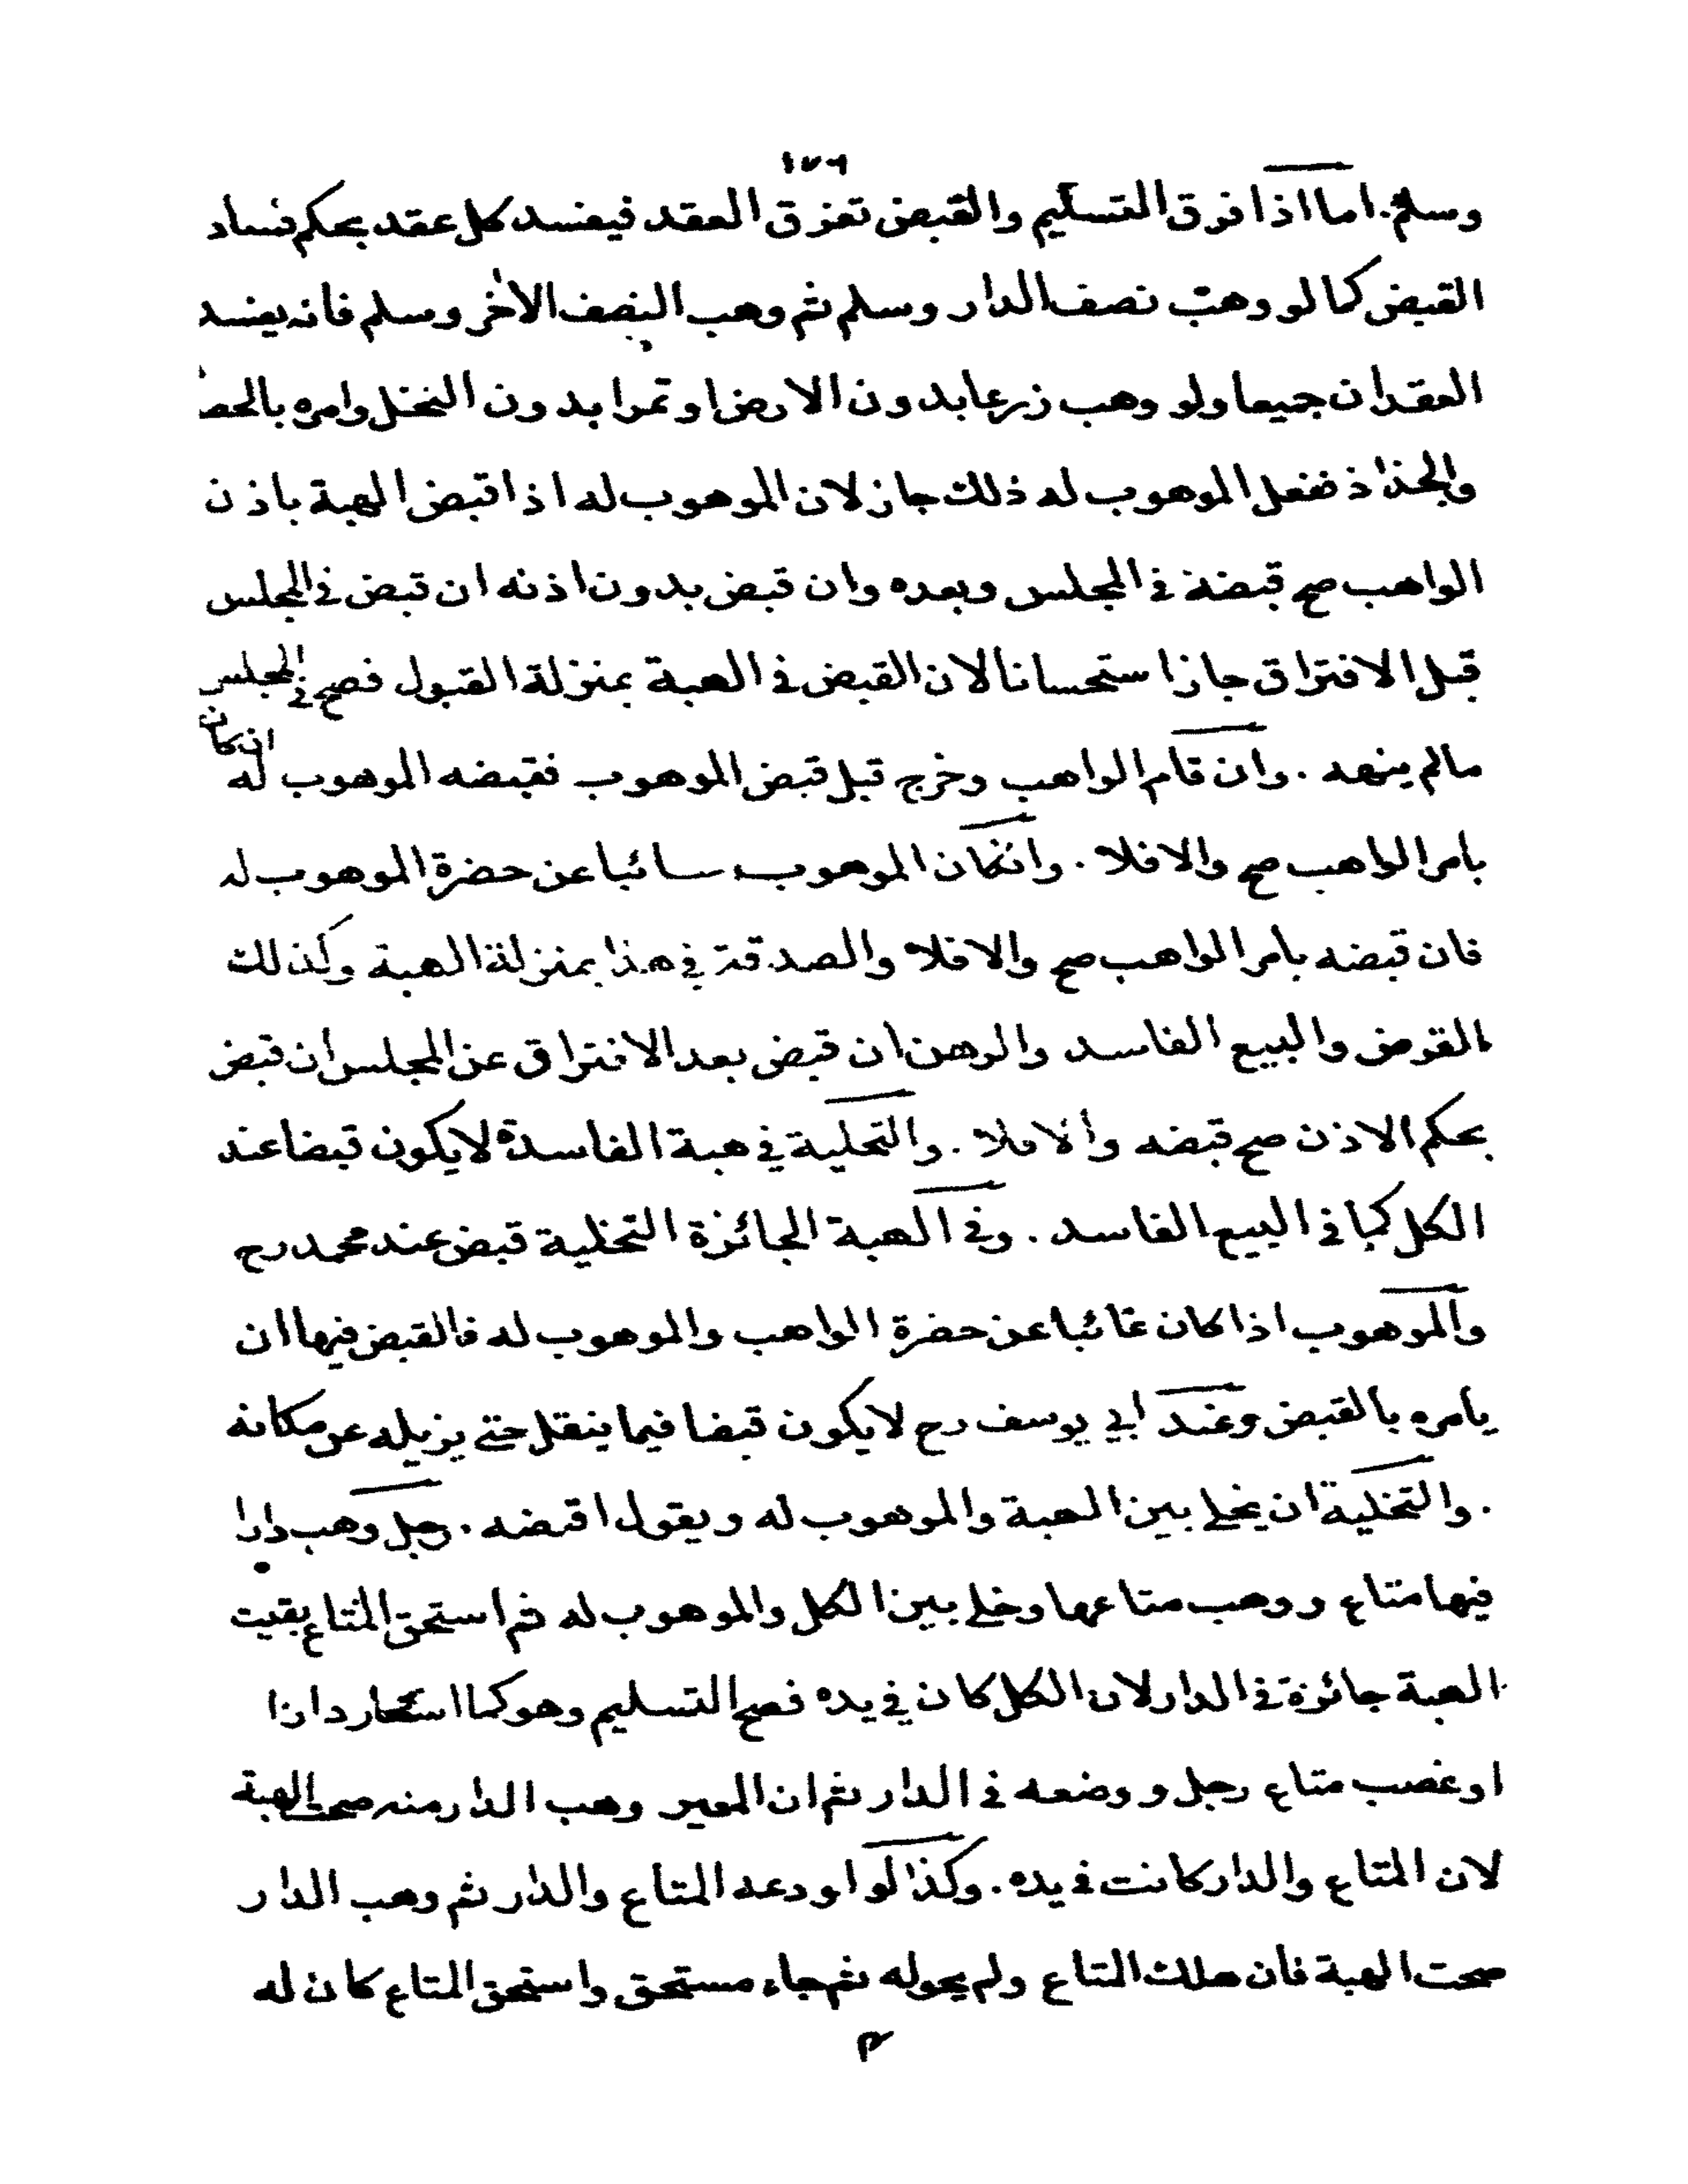 ١٧٦
وسلم. اما اذا فرق التسليم والقبض تفرق العقد فيفسد كل عقد بحكم فساد
القبض كما لو وهب نصف الدار وسلم ثم وهب النصف الاخر وسلم فانه يفسد
العقدان جميعا ولو وهب زرعا بدون الارض او تمرا بدون النخل وامره بالحصا
والجذاذ ففعل الموهوب له ذلك جاز لان الموهوب له اذا قبض الهبة باذن
الواهب صح قبضه في المجلس وبعده وان قبض بدون اذنه ان قبض في المجلس
قبل الافتراق جاز استحسانا لان القبض في الهبة بمنزلة القبول فصح في المجلس
مالم ينهه . وان قام الواهب وخرج قبل قبض الموهوب فقبضه الموهوب له ان كان
بامر الواهب صح والا فلا . وانكان الموهوب سائبا عن حضرة الموهوب له
فان قبضه بامر الواهب صح والا فلا والصدقة في هذا بمنزلة الهبة وكذلك
القرض والبيع الفاسد والرهن ان قبض بعد الافتراق عن المجلس ان قبض
بحكم الاذن صح قبضه والا فلا . والتخلية في هبة الفاسدة لا يكون قبضا عند
الكل كما في البيع الفاسد . وفي الهبة الجائزة التخلية قبض عند محمد رح
والموهوب اذا كان غائبا عن حضرة الواهب والموهوب له فالقبض فيها ان
يامره بالقبض وعند ابي يوسف رح لا يكون قبضا فيما ينقل حتى يزيله عن مكانه
. والتخلية ان يخلي بين الهبة والموهوب له ويقول اقبضه . رجل وهب دارا
فيها متاع ووهب متاعها وخلي بين الكل والموهوب له ثم استحق المتاع بقيت
الهبة جائزة في الدار لان الكل كان في يده فصح التسليم وهو كما استعار دارا
او غصب متاع رجل ووضعه في الدار ثم ان المعير وهب الدار منه صحت الهبة
لان المتاع والدار كانت في يده . وكذا لو اودعه المتاع والدار ثم وهب الدار
صحت الهبة فان هلك المتاع ولم يحوله ثم جاء مستحق واستحق المتاع كان له